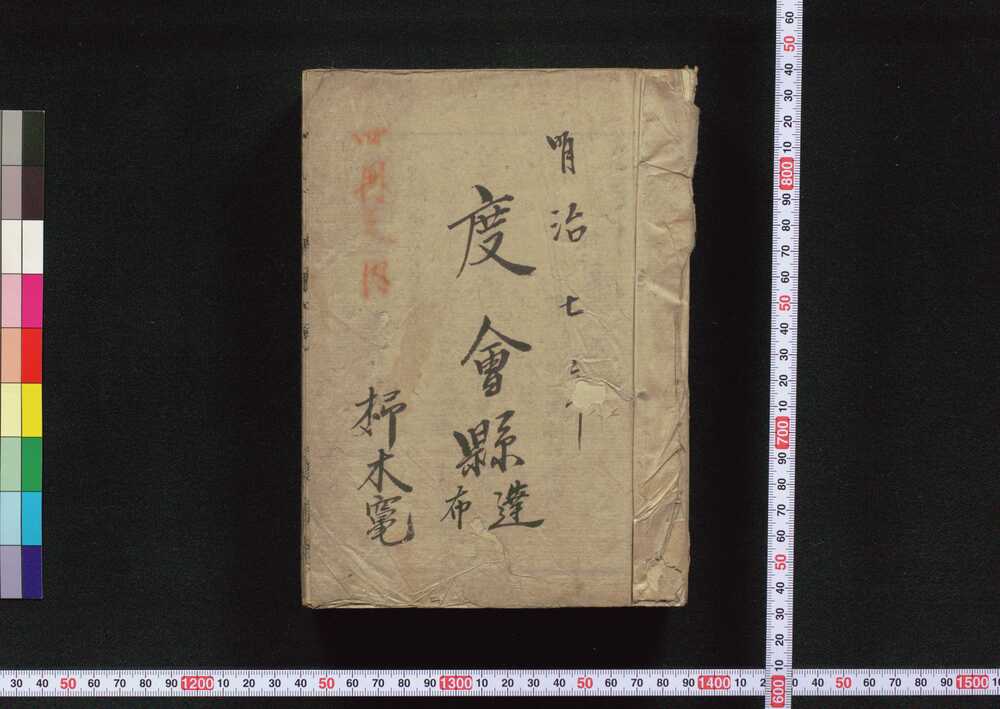 明治七
度會縣
達
布
木竃
30 40 50 60 70 80 90 1200 10 20 30 40 50 60 70 80 90 1300 10 20 30 40 50 60 70 80 90 1400 10 2 0 30 40 50 60 70 80 90 1500
60 50 40 30 20 10 800 90 80 70 60 50 40 30 20 10 700 90 80 70 60 50 40 30 20 10 600